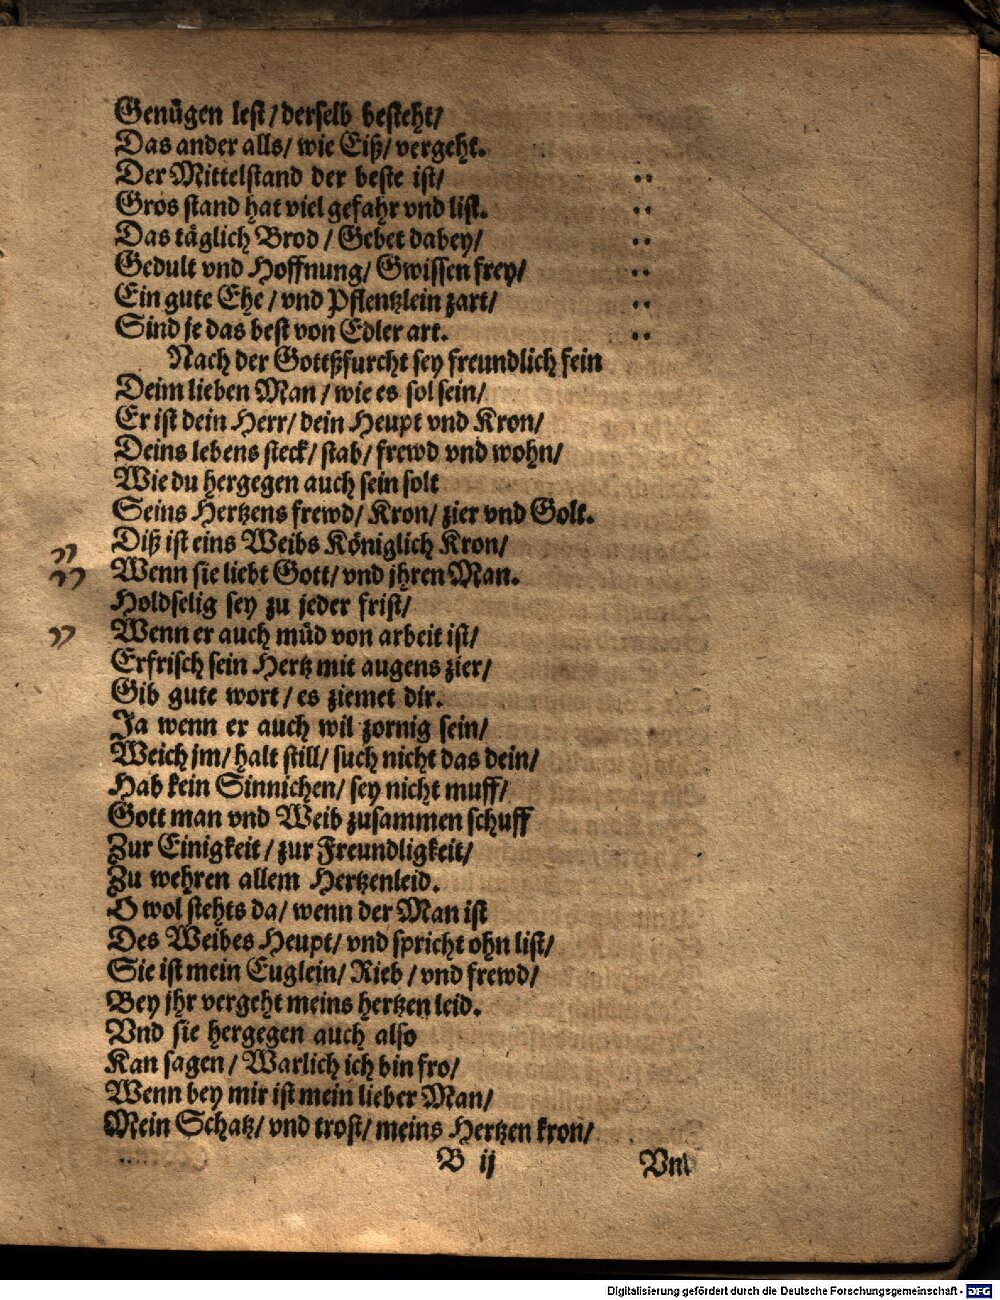 Genügen lest/ derselb besteht/
Das ander alls/ wie Eiß/ vergeht.
Der Mittelstand der beste ist/
Gros stand hat viel gefahr vnd list.
Das täglich Brod/ Gebet dabey/
Gedult vnd Hoffnung/ Gwissen frey/
Ein gute Ehe/ vnd Pflentzlein zart/
Sind je das best von Edler art.
Nach der Gottßfurcht sey freundlich fein
Deim lieben Man/ wie es sol sein/
Er ist dein Herr/ dein Heupt vnd Kron/
Deins lebens steck/ stab/ frewd vnd wohn/
Wie du hergegen auch sein solt
Seins Hertzens frewd/ Kron/ zier vnd Golt.
Diß ist eins Weibs Königlich Kron/
Wenn sie liebt Gott/ vnd jhren Man.
Holdselig sey zu jeder frist/
Wenn er auch müd von arbeit ist/
Erfrisch sein Hertz mit augens zier/
Gib gute wort/ es ziemet dir.
Ja wenn er auch wil zornig sein/
Weich jm/ halt still/ such nicht das dein/
Hab kein Sinnichen/ sey nicht muff/
Gott man vnd Weib zusammen schuff
Zur Einigkeit/ zur Freundligkeit/
Zu wehren allem Hertzenleid.
O wol stehts da/ wenn der Man ist
Des Weibes Heupt/ vnd spricht ohn list/
Sie ist mein Euglein/ Rieb/ vnd frewd/
Bey jhr vergeht meins hertzen leid.
Vnd sie hergegen auch also
Kan sagen/ Warlich ich bin fro/
Wenn bey mir ist mein lieber Man/
Mein Schatz/ vnd trost/ meins Hertzen kron/
B ij Vnd
Digitalisierung gefördert durch die Deutsche Forschungsgemeinschaft - DFG